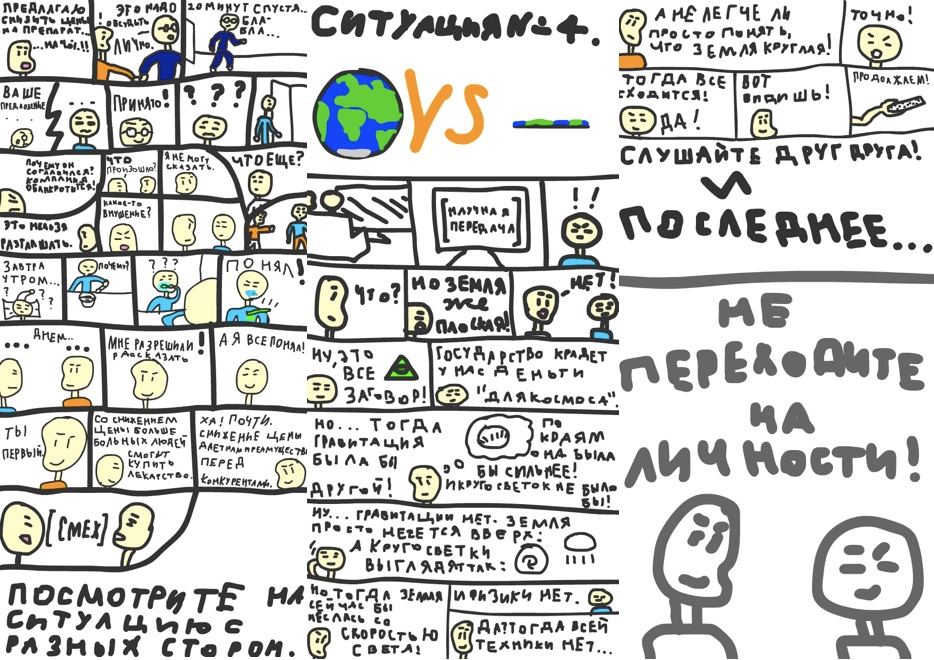 ПРЕДЛАГАЮ
СНИЗИТЬ ЦЕНЫ
НА ПРЕПАРАТ...
...НАЧАЛ!!
ЭТО НАДО
ОБСУДИТЬ
ЛИЧНО.
20 МИНУТ СПУСТЯ...
БЛА-
БЛА...
ВАШЕ
ПРЕДЛОЖЕНИЕ
...
ПРИНЯТО!
? ? ?
ПОЧЕМУ ОН
СОГЛАСИЛСЯ?
КОМПАНИЯ
ОБАНКРОТИТЬСЯ!
ЧТО
ПРОИЗОШЛО?
Я НЕ МОГУ
СКАЗАТЬ.
ЧТО ЕЩЕ?
ЭТО НЕЛЬЗЯ
РАЗГЛАШАТЬ.
КАКОЕ-ТО
ВНУШЕНИЕ?
ЗАВТРА
УТРОМ...
? ? ?
ПОЧЕМУ?
? ? ?
ПОНЯЛ!
ДНЕМ...
... ...
МНЕ РАЗРЕШИЛИ
РАССКАЗАТЬ!
А Я ВСЕ ПОНЯЛ!
ТЫ
ПЕРВЫЙ.
СО СНИЖЕНИЕМ
ЦЕНЫ БОЛЬШЕ
БОЛЬНЫХ ЛЮДЕЙ
СМОГУТ
КУПИТЬ
ЛЕКАРСТВО.
ХА! ПОЧТИ.
СНИЖЕНИЕ ЦЕНЫ
ДАЕТ НАМ ПРЕИМУЩЕСТВО
ПЕРЕД
КОНКУРЕНТАМИ.
[СМЕХ]
ПОСМОТРИТЕ НА
СИТУАЦИЮ С
РАЗНЫХ СТОРОН.
СИТУАЦИЯ №4.
VS
[НАУЧНАЯ
ПЕРЕДАЧА]
!!
ЧТО?
НО ЗЕМЛЯ
ЖЕ
ПЛОСКАЯ!
НЕТ!
НУ, ЭТО
ВСЕ
ЗАГОВОР!
ГОСУДАРСТВО КРАДЕТ
У НАС ДЕНЬГИ
"ДЛЯ КОСМОСА".
НО... ТОГДА
ГРАВИТАЦИЯ
БЫЛА БЫ
ДРУГОЙ!
ПО
КРАЯМ
ОНА БЫЛА
БЫ СИЛЬНЕЕ!
И КРУГОСВЕТОК НЕ БЫЛО
БЫ!
НУ... ГРАВИТАЦИИ НЕТ. ЗЕМЛЯ
ПРОСТО НЕСЕТСЯ ВВЕРХ!
А КРУГОСВЕТКИ
ВЫГЛЯДЯТ ТАК:
НО ТОГДА ЗЕМЛЯ
СЕЙЧАС БЫ
НЕСЛАСЬ СО
СКОРОСТЬЮ
СВЕТА!
И ФИЗИКИ НЕТ.
ДА? ТОГДА ВСЕЙ
ТЕХНИКИ НЕТ...
А НЕ ЛЕГЧЕ ЛИ
ПРОСТО ПОНЯТЬ,
ЧТО ЗЕМЛЯ КРУГЛАЯ!
ТОЧНО!
ТОГДА ВСЕ
СХОДИТСЯ!
ДА!
ВОТ
ВИДИШЬ!
ПРОДОЛЖАЕМ!
СЛУШАЙТЕ ДРУГ ДРУГА!
И
ПОСЛЕДНЕЕ...
НЕ
ПЕРЕХОДИТЕ
НА
ЛИЧНОСТИ!